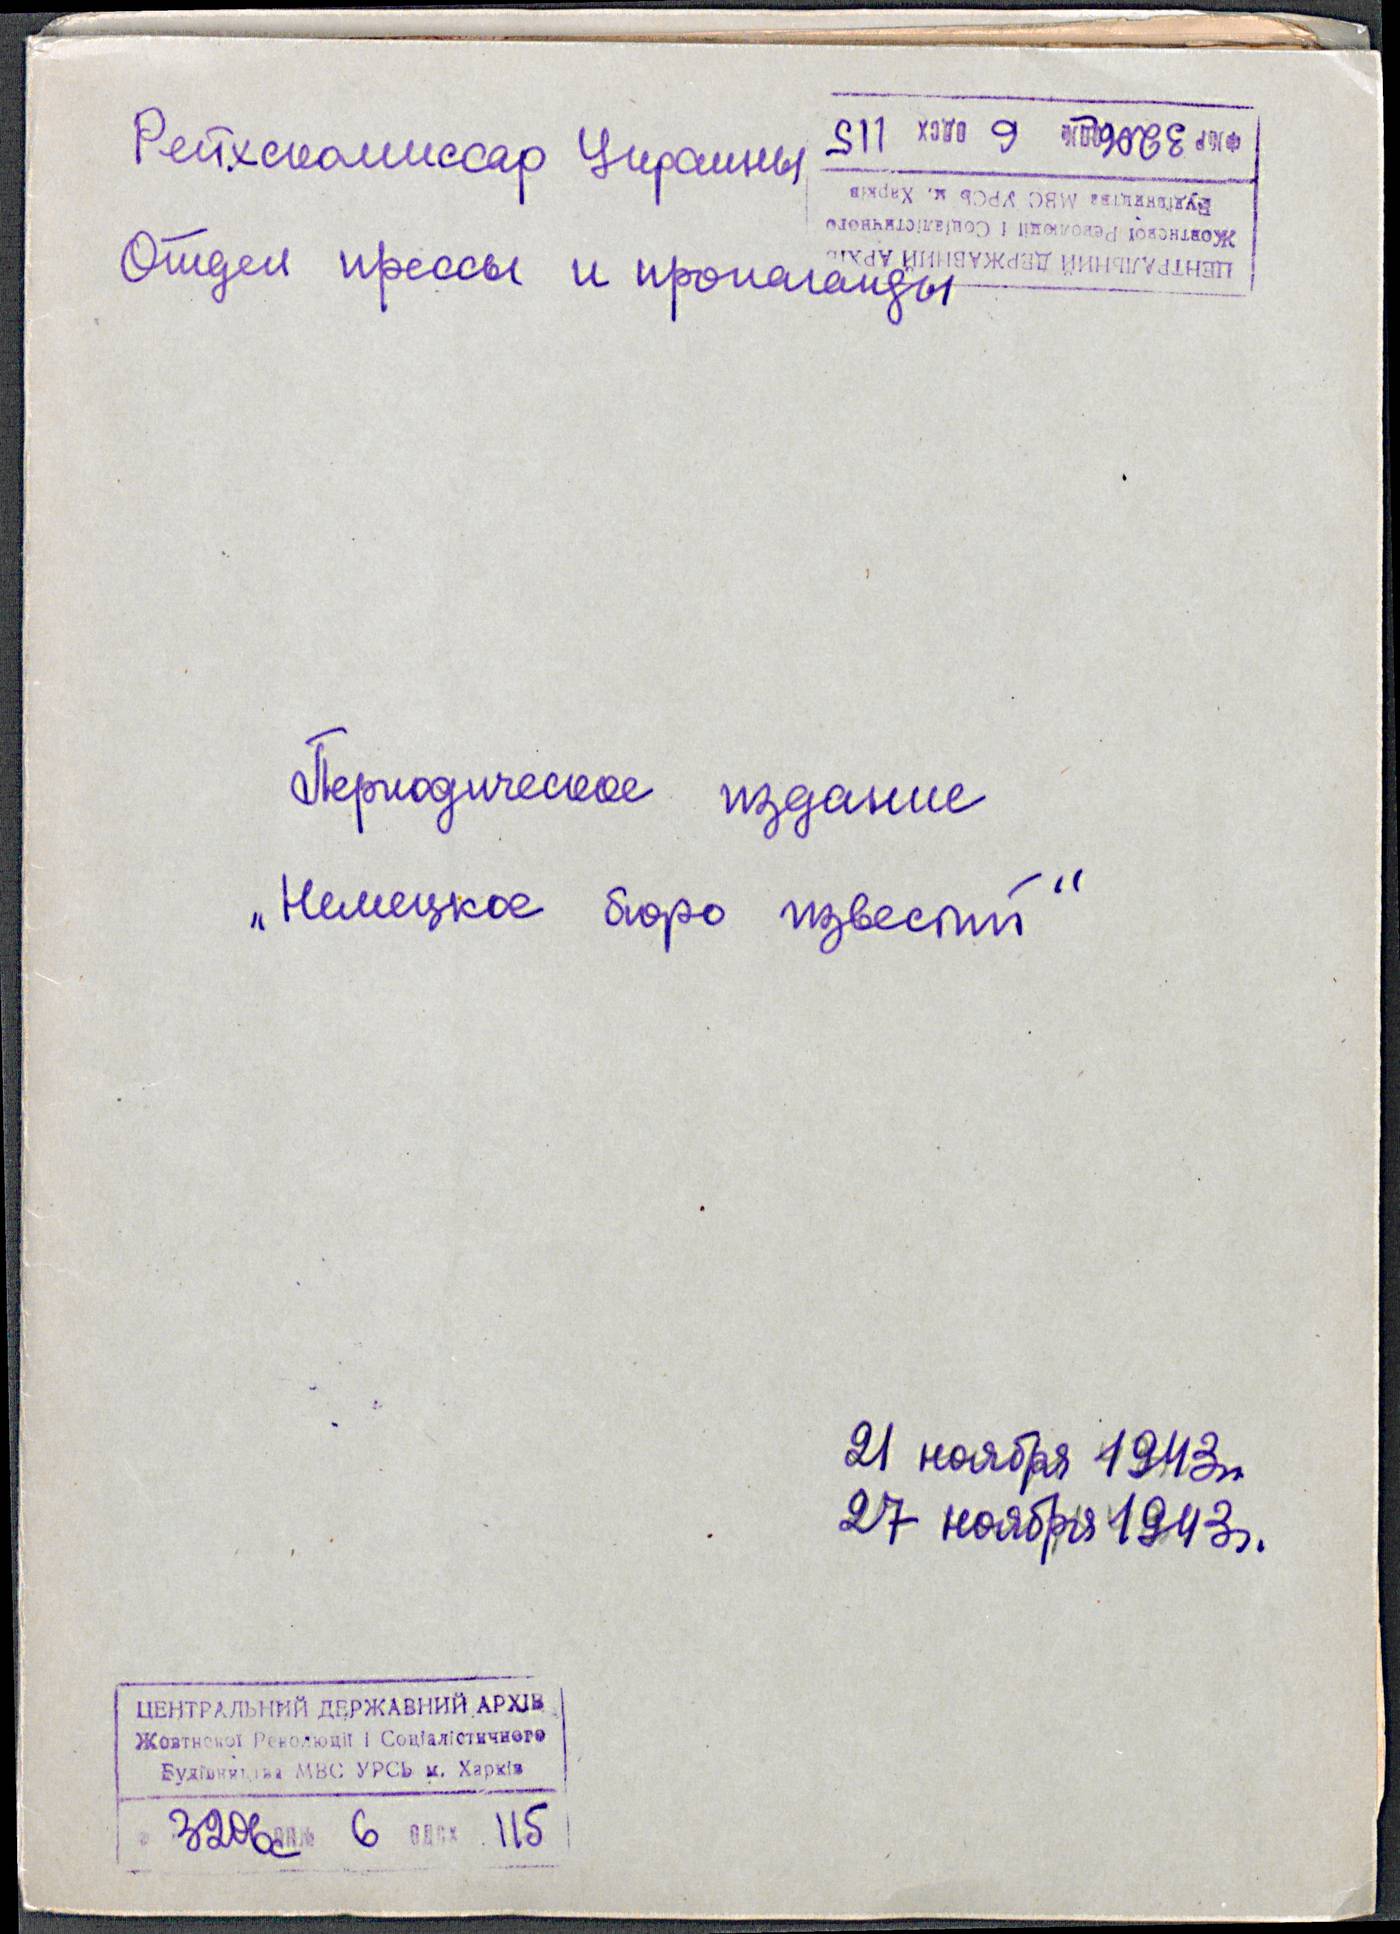 Рейхскомиссар Украины
Отдел прессы и пропаганды
ЦЕНТРАЛЬНИЙ ДЕРЖАВНИЙ АРХІВ
Жовтневої Революції і Соціалістичного
Будівництва МВС УРСР м. Харків
Ф№Р 3206 ОП№ 6 ОДСХ 115
Периодическое издание
„Немецкое бюро известий“
21 ноября 1943г.
27 ноября 1943г.
ЦЕНТРАЛЬНИЙ ДЕРЖАВНИЙ АРХІВ
Жовтневої Революції і Соціалістичного
Будівництва МВС УРСР м. Харків
3206 ОП№ 6 ОДСХ 115